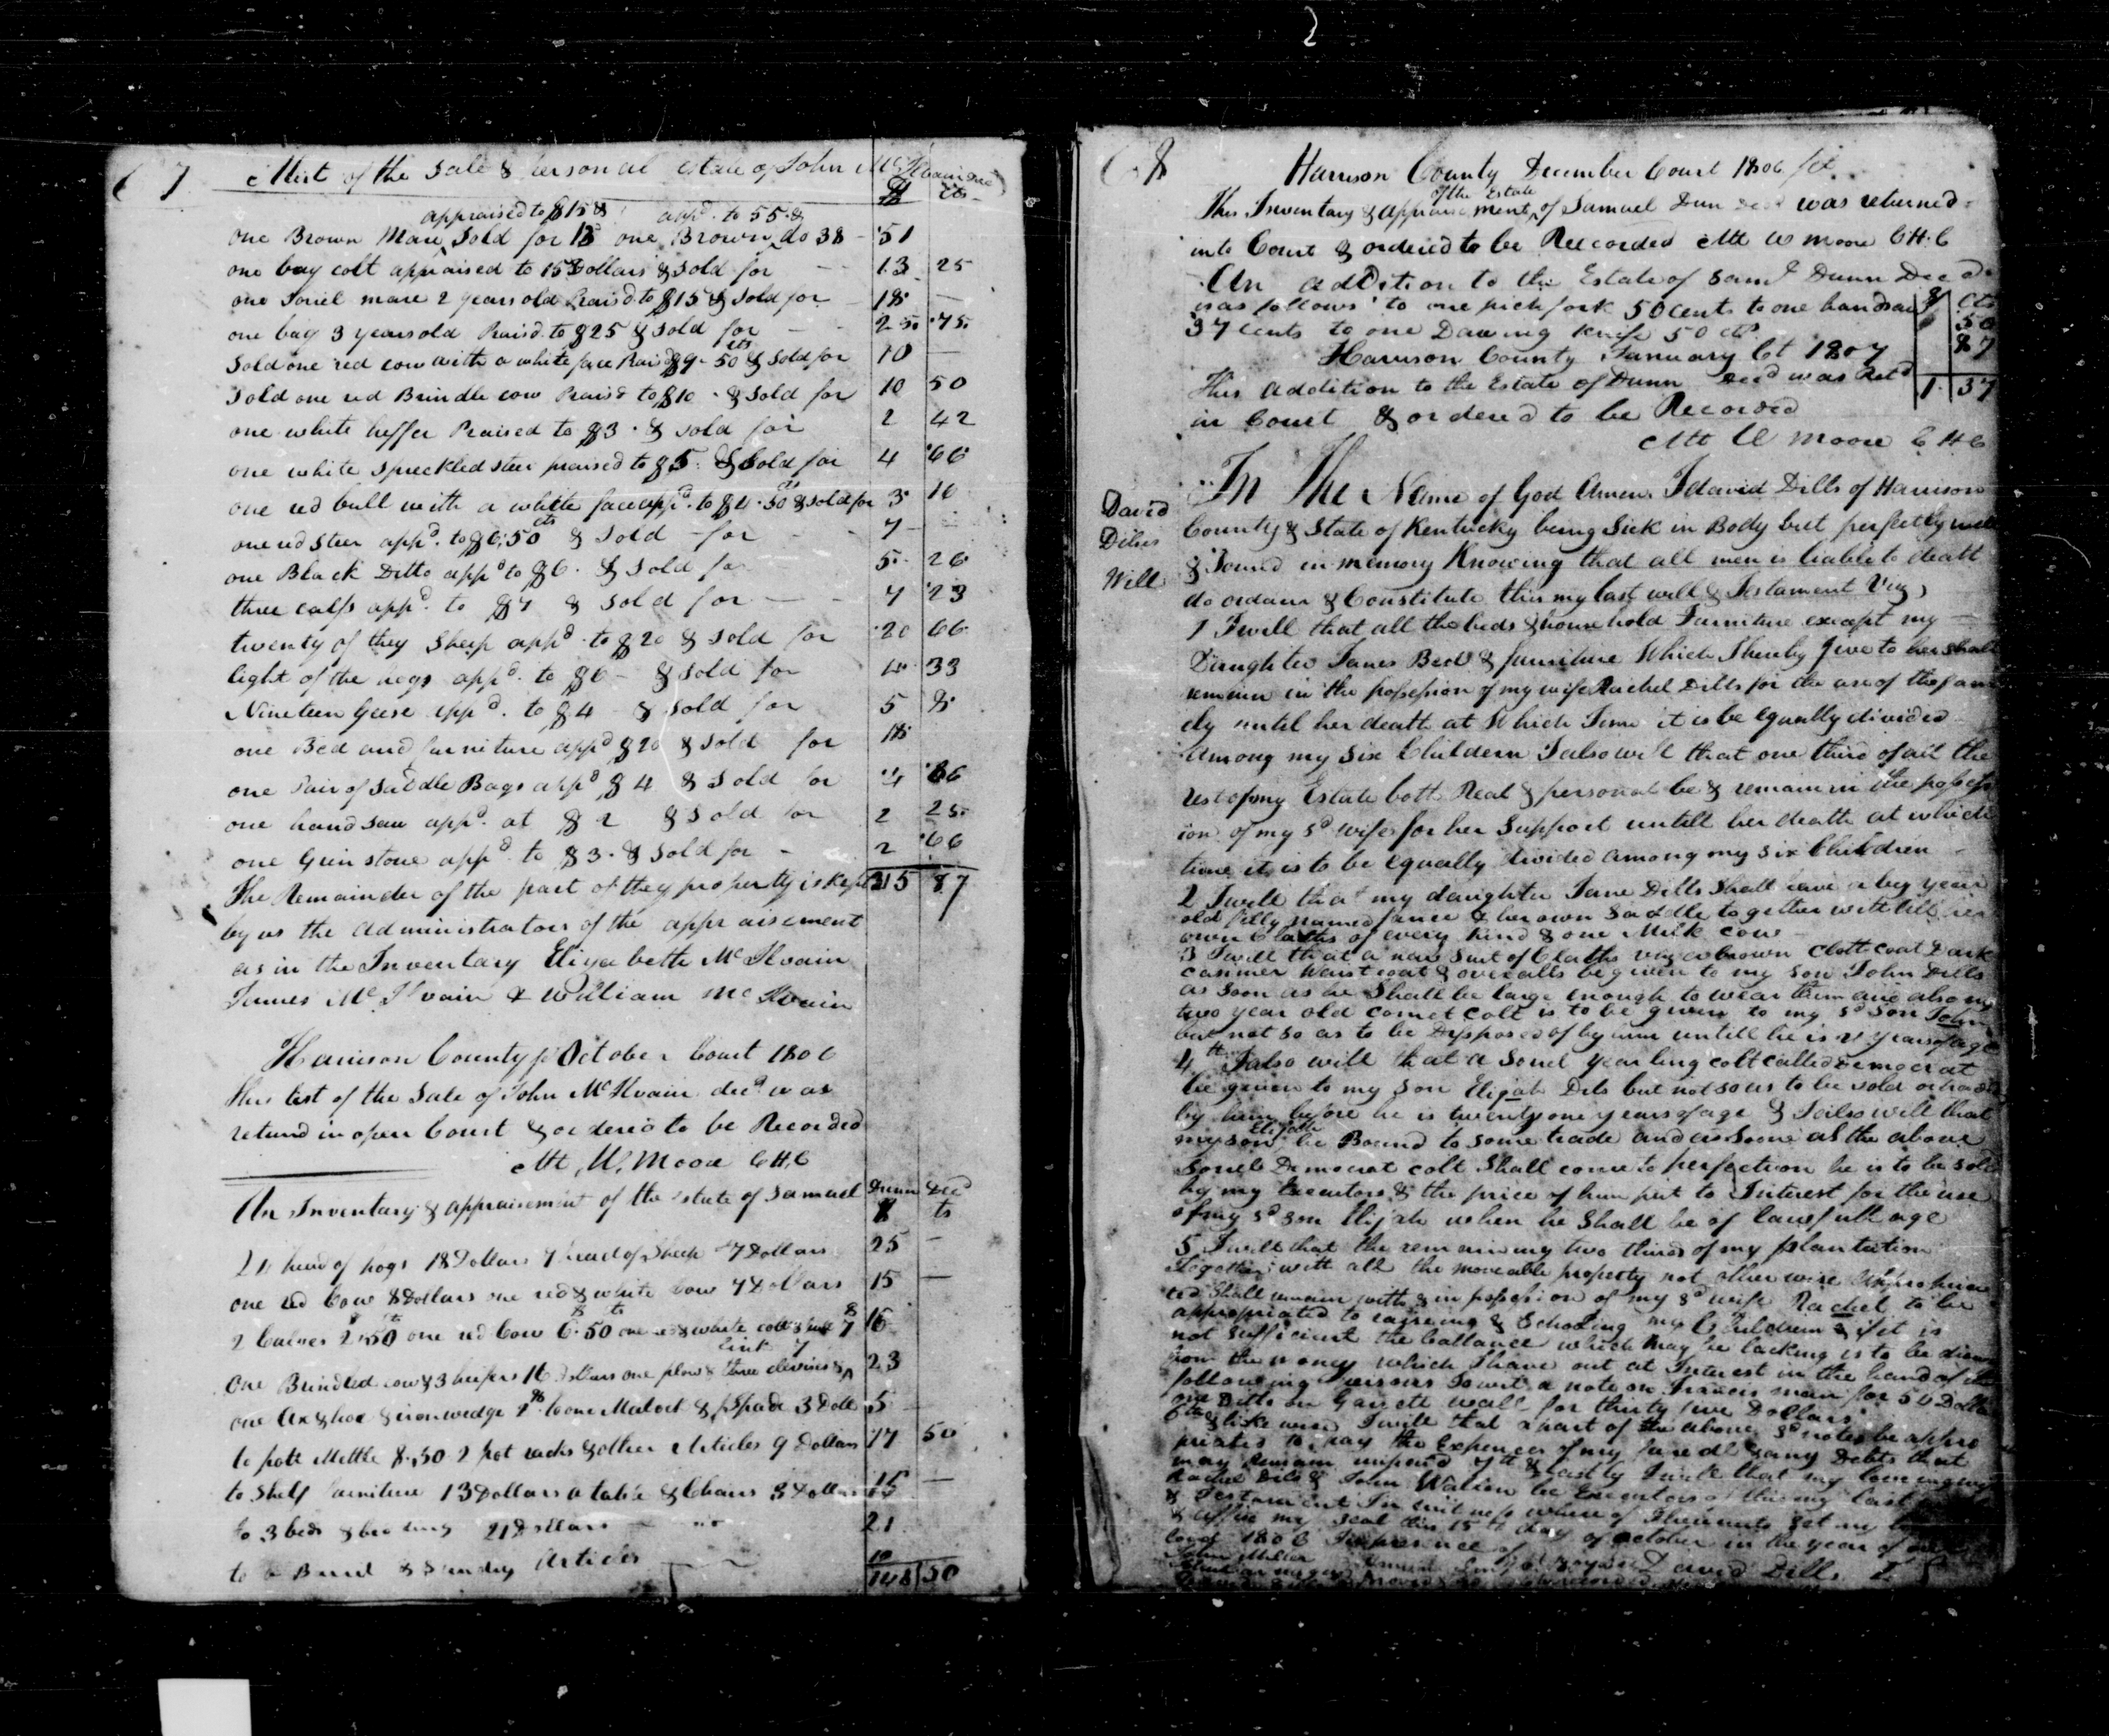 7 A List of the Sale & personal estate of John McIlvain Decd
$ cts
appraised to $15 & appd. to 55 &
one Brown Mare Sold for 13 one Brown do 38 - 51
one bay colt appraised to 15 Dollars & Sold for 13 25
one Sorriel mare 2 years old Praisd to $15 & Sold for 18 —
one bay 3 years old Praisd. to $25 & Sold for 25 75
Sold one red cow with a white face Praisd $9-50 cts & Sold for 10 —
Sold one red Brindle cow Praisd to $10 & Sold for 10 50
one white heffer Praised to $3 & Sold for 2 42
one white Spreckled steer praised to $5 & Sold for 4 66
one red bull with a white face appd. to $4.50 cts & Sold for 3 16
one red Steer appd. to $6.50 cts & Sold for 7
one Black Ditto appd to $6 & Sold for 5 26
three calfs appd. to $7 & Sold for 7 23
twenty of they Sheep appd. to $20 & Sold for 20 66
Eight of the hogs appd. to $6 & Sold for 33
Nineteen Geese appd. to $4 & Sold for 5 8
one Bed and furniture appd $20 & Sold for 18
one Pair of Saddle Bags appd $4 & Sold for 4 66
one hand Saw appd. at $2 & Sold for 2 25
one Grin stone appd. to $3 & Sold for 2 66
The Remainder of the part of they property is Kept 215 87
by us the administrators of the appraisement
as in the Inventary Elizabeth McIlvain
James McIlvain & William McIlvain
Harrison County October Court 1806
This list of the Sale of John McIlvain decd. was
returnd in open Court & ordered to be Recorded
Att W. Moore CHC
An Inventary & appraisement of the Estate of Samuel Dunn Decd
$ cts
head of hogs 18 Dollars 7 head of Sheep 7 Dollars 25 —
one red Cow 8 Dollars one red & white Cow 7 Dollars 15 —
2 Calves 2.50 one red Cow 6.50 one red & white 7 16
One Brindled cow & 3 heifers 16 Dollars one plow & three clevises & 23
one ax & hoe & iron wedge 2 to one Matock & Spade 3 Dolls 5 —
to pott Mettle 8.50 2 pot racks & other Articles 9 Dollars 17 50
to Shelf furniture 13 Dollars a table & Chairs 3 Dollars 16 —
to 3 beds & bedding 21 Dollars 21
to a Barrel & Sundry Articles 10
148 50
8
Harrison County December Court 1806
of the Estate
This Inventary & appraisement of Samuel Dun Decd was returned
into Court & ordered to be Recorded Att W Moore CHC
An addition to the Estate of Saml Dunn Decd
is as follows to one pich fork 50 cents to one handsaw $ Cts
37 cents to one Dawing Knife 50 cts 50
Harrison County January Ct 1807 87
This addition to the Estate of Dunn Decd was Retd 1. 37
in Court & ordered to be Recorded
Att W Moore CHC
David
Dilles
Will
In The Name of God Amen I david Dills of Harrison
County & State of Kentucky being Sick in Body but perfectly well
& Sound in memory Knowing that all men is liable to death
do ordain & Constitute this my last will & Testament Viz
1 I will that all the beds & house hold Furniture except my
Daughter Janes Bed & furniture Which I hereby give to her shall
remain in the possession of my wife Rachel Dills for the use of the fam
ely until her death at Which Time it is be Equally divided
Among my Six Childern I also will that one third of all the
rest of my Estate both Real & personal be & remain in the possess
ion of my sd wife for her Support untill her death at which
time it is to be Equally divided among my six Children
2 I will that my daughter Jane Dills Shall have a bey year
old filly named & her own Saddle together with all her
own Cloaths of every Kind & one Milk Cow
3 I will that a new Suit of Cloaths viz a brown Cloth coat Dark
casimer Waistcoat & overalls be given to my Son John Dills
as Soon as he Shall be large enough to wear them and also my
two year old comet colt is to be given to my sd Son John
but not so as to be Dispposed of by him untill he is 21 years of age
4th I also will that a Sorrel yearling colt called Democrat
be given to my Son Elijah Dils but not so as to be sold or traded
by him before he is twenty one years of age & I also will that
Elijah
my son be Bound to some trade and as Soone as the above
Sorrell Democrat colt Shall come to perfection he is to be sold
by my Executors & the price of him put to Interest for the use
of my sd son Elijah when he Shall be of lawfull age
5 I will that the remaining two thirds of my plantation
Together with all the moveable property not other wise appropria
ted Shall remain with & in possession of my sd wife Rachel to be
appropriated to raiseing & Schooling my Children & if it is
not Sufficient the ballance which may be lacking is to be drawn
from the money which I have out at Interest in the hand of the
following Persons towit a note on Francis man for 50 Dollars
one Ditto on Garrett wall for thirty five Dollars
likewise I will that a part of the above sd notes be appro
priated to pay the Expences of my funeral & any Debts that
may remain unpaid & lastly I will that my loveing wife
Rachel Dils & John Watson be Executors of this my last
& Testament In witness where of I hereunto set my
& affix my Seal this 15th day of October in the year of our
Lord 1806 In presence of
John Miller David Dills